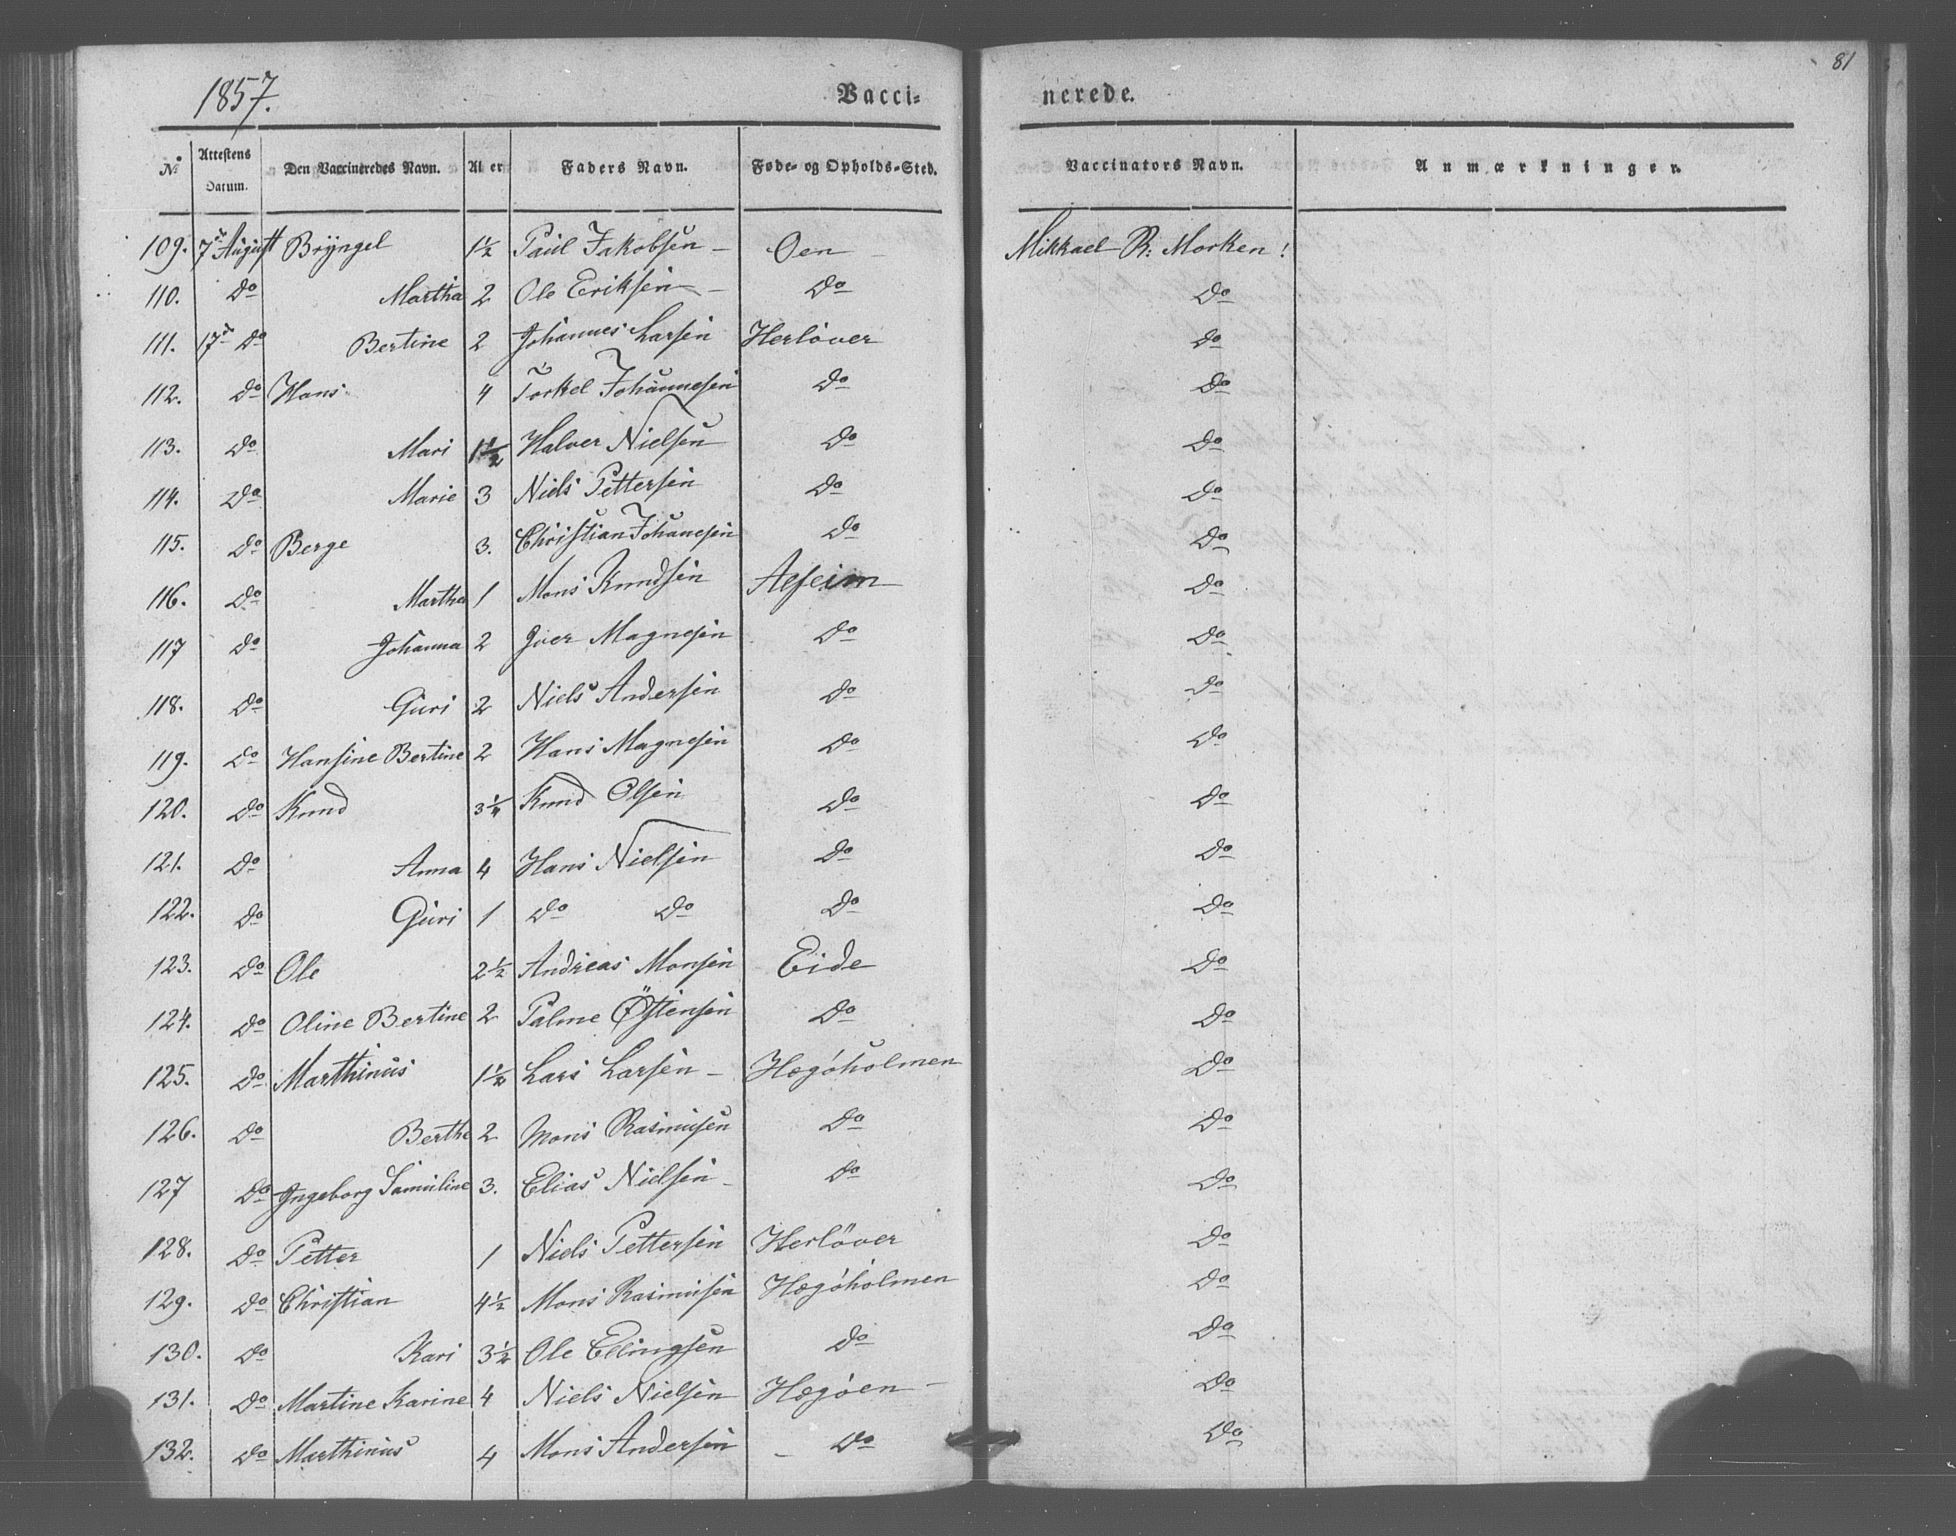 1857.
Vacci= nerede.
81
No Attestens Datum. Den Vaccineredes Navn. Al er Faders Navn. Føde- og Opholds-Sted. Vaccinators Navn. Anmærkninger.
109. 7de August Bryngel 1½ Paul Jakobsen - Oen - Mikkael R: Morken!
110. Do Martha 2 Ole Eriksen - Do Do
111. 17de Do Bertine 2 Johannes Larsen Herløver Do
112. Do Hans 4 Torkel Johannesen Do Do
113. Do Mari 1½ Halver Nielsen Do Do
114. Do Marie 3 Niels Pettersen Do Do
115. Do Berge 3. Christian Johanesen Do Do
116. Do Martha 1 Mons Knudsen Do
117 Do Johanna 2 Magnesen Do Do
118. Do Guri 2 Niels Andersen Do Do
119. Do Hansine Bertine 2 Hans Magnesen Do Do
120. Do Knud 3¼ Knud Olsen Do Do
121. Do Anna 4 Hans Nielsen Do Do
122. Do Guri 1 Do Do Do Do
123. Do Ole 2½ Andreas Monsen Eide Do
124. Do Oline Bertine 2 Palme Östensen Do Do
125. Do Marthinus 1½ Lars Larsen - Hægøholmen Do
126. Do Berthe 2 Mons Rasmusen Do Do
127 Do Ingeborg Samuline 3. Elias Nielsen - Do Do
128. Do Petter 1 Niels Pettersen Herløver Do
129. Do Christian 4½ Mons Rasmusen Hægøholmen Do
130. Do Kari 3½ Ole Ellingsen Do Do
131. Do Martine Karine 4 Niels Nielsen Hægøen - Do
132. Do Marthinus 4 Mons Andersen - Do Do